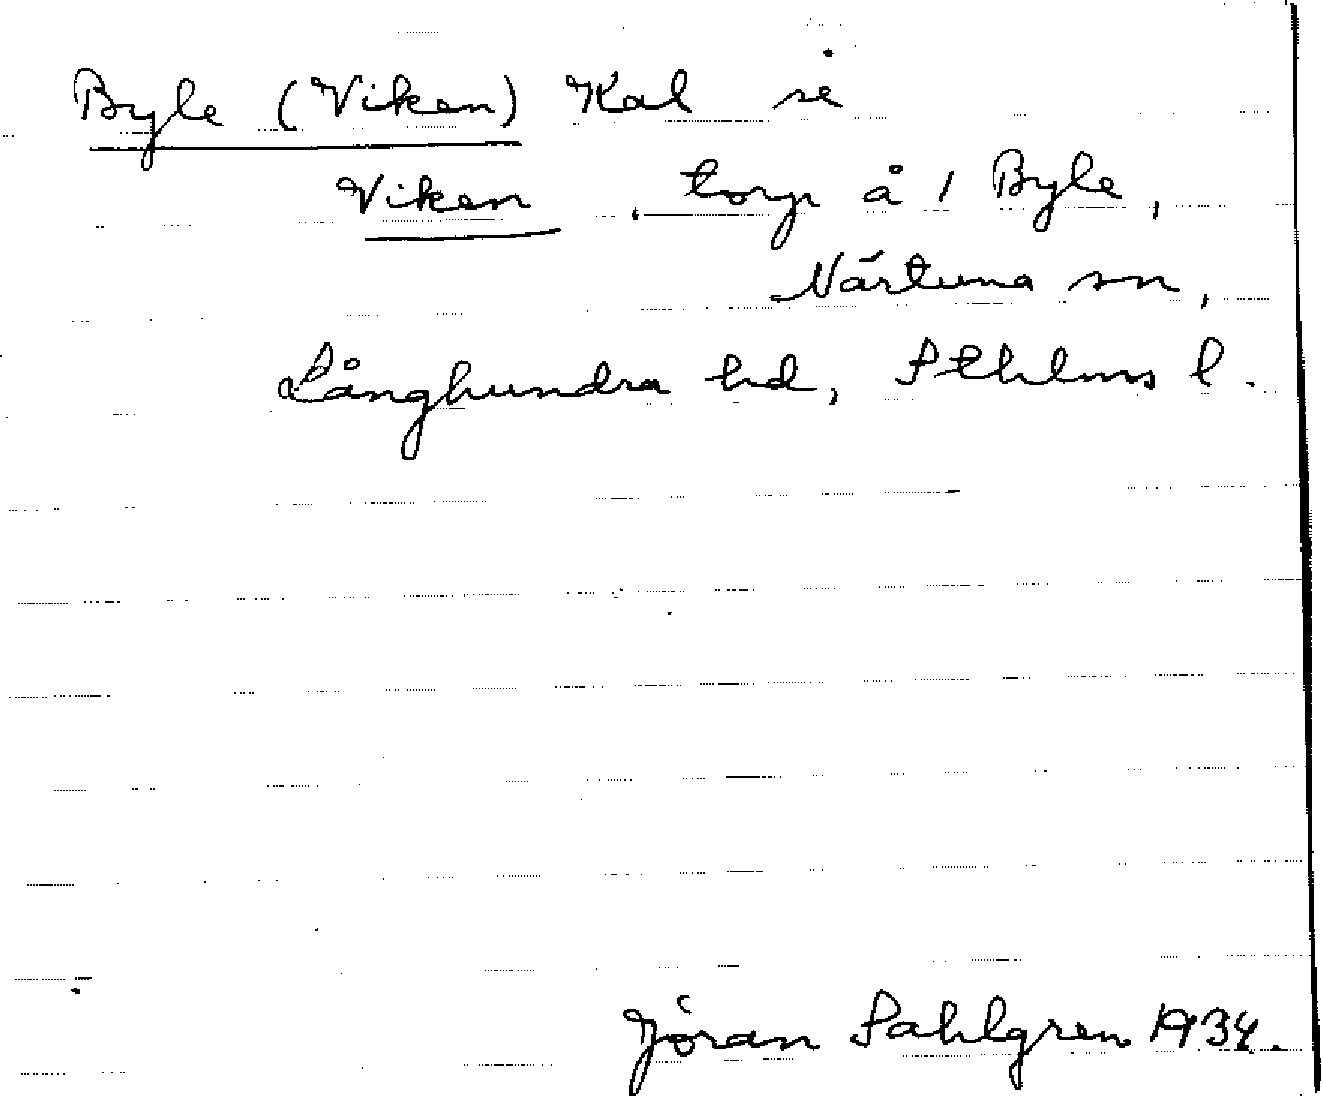 Byle (Viken) Kal se
Viken, torp å 1 Byle,
Närtuna sn,
Långhundra hd, Sthlms l.
Jöran Sahlgren 1934.